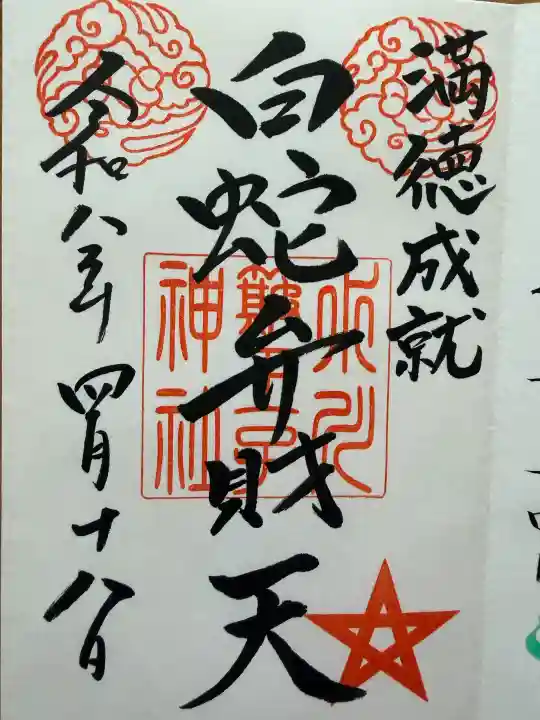 満徳成就
白蛇弁財天
令和八年 四月十八日
神社